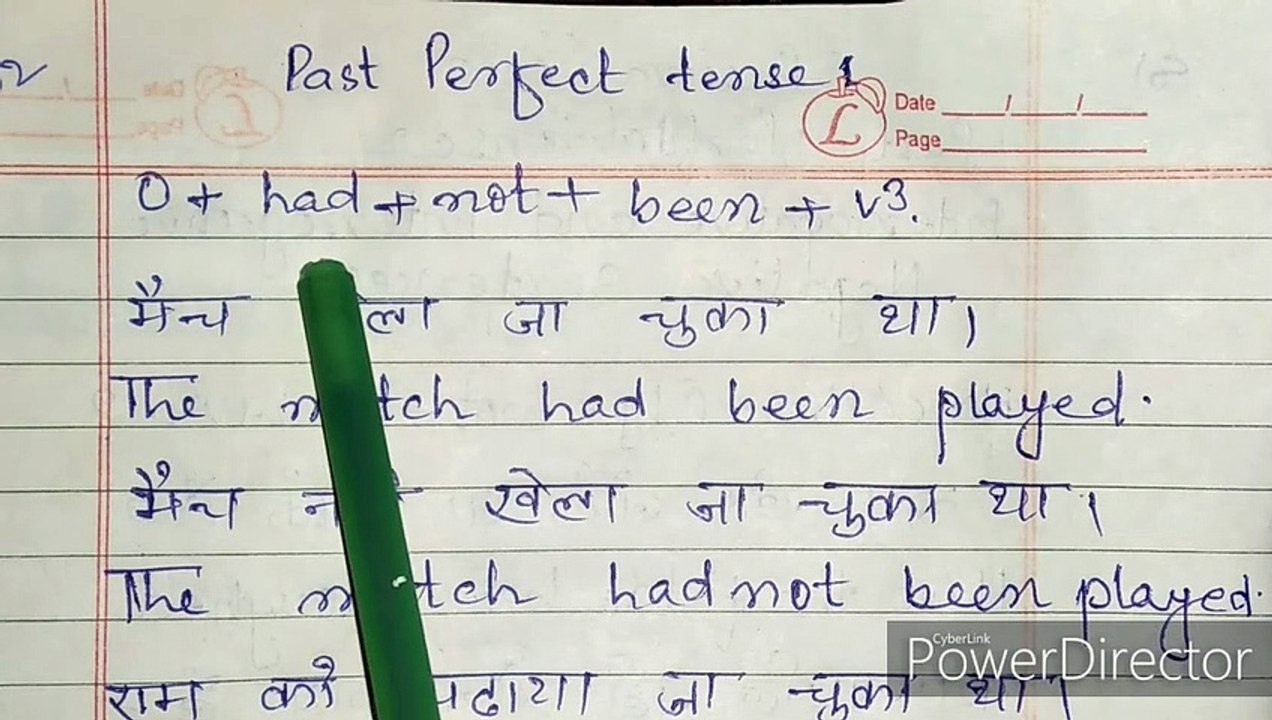 Past Perfect tense
Date / /
L
Page
O + had + not + been + v3.
मैच जा चुका था।
The had been played.
मैच खेला जा चुका था।
The had not been played.
CyberLink
PowerDirector
राम को पढाया जा चुका था।